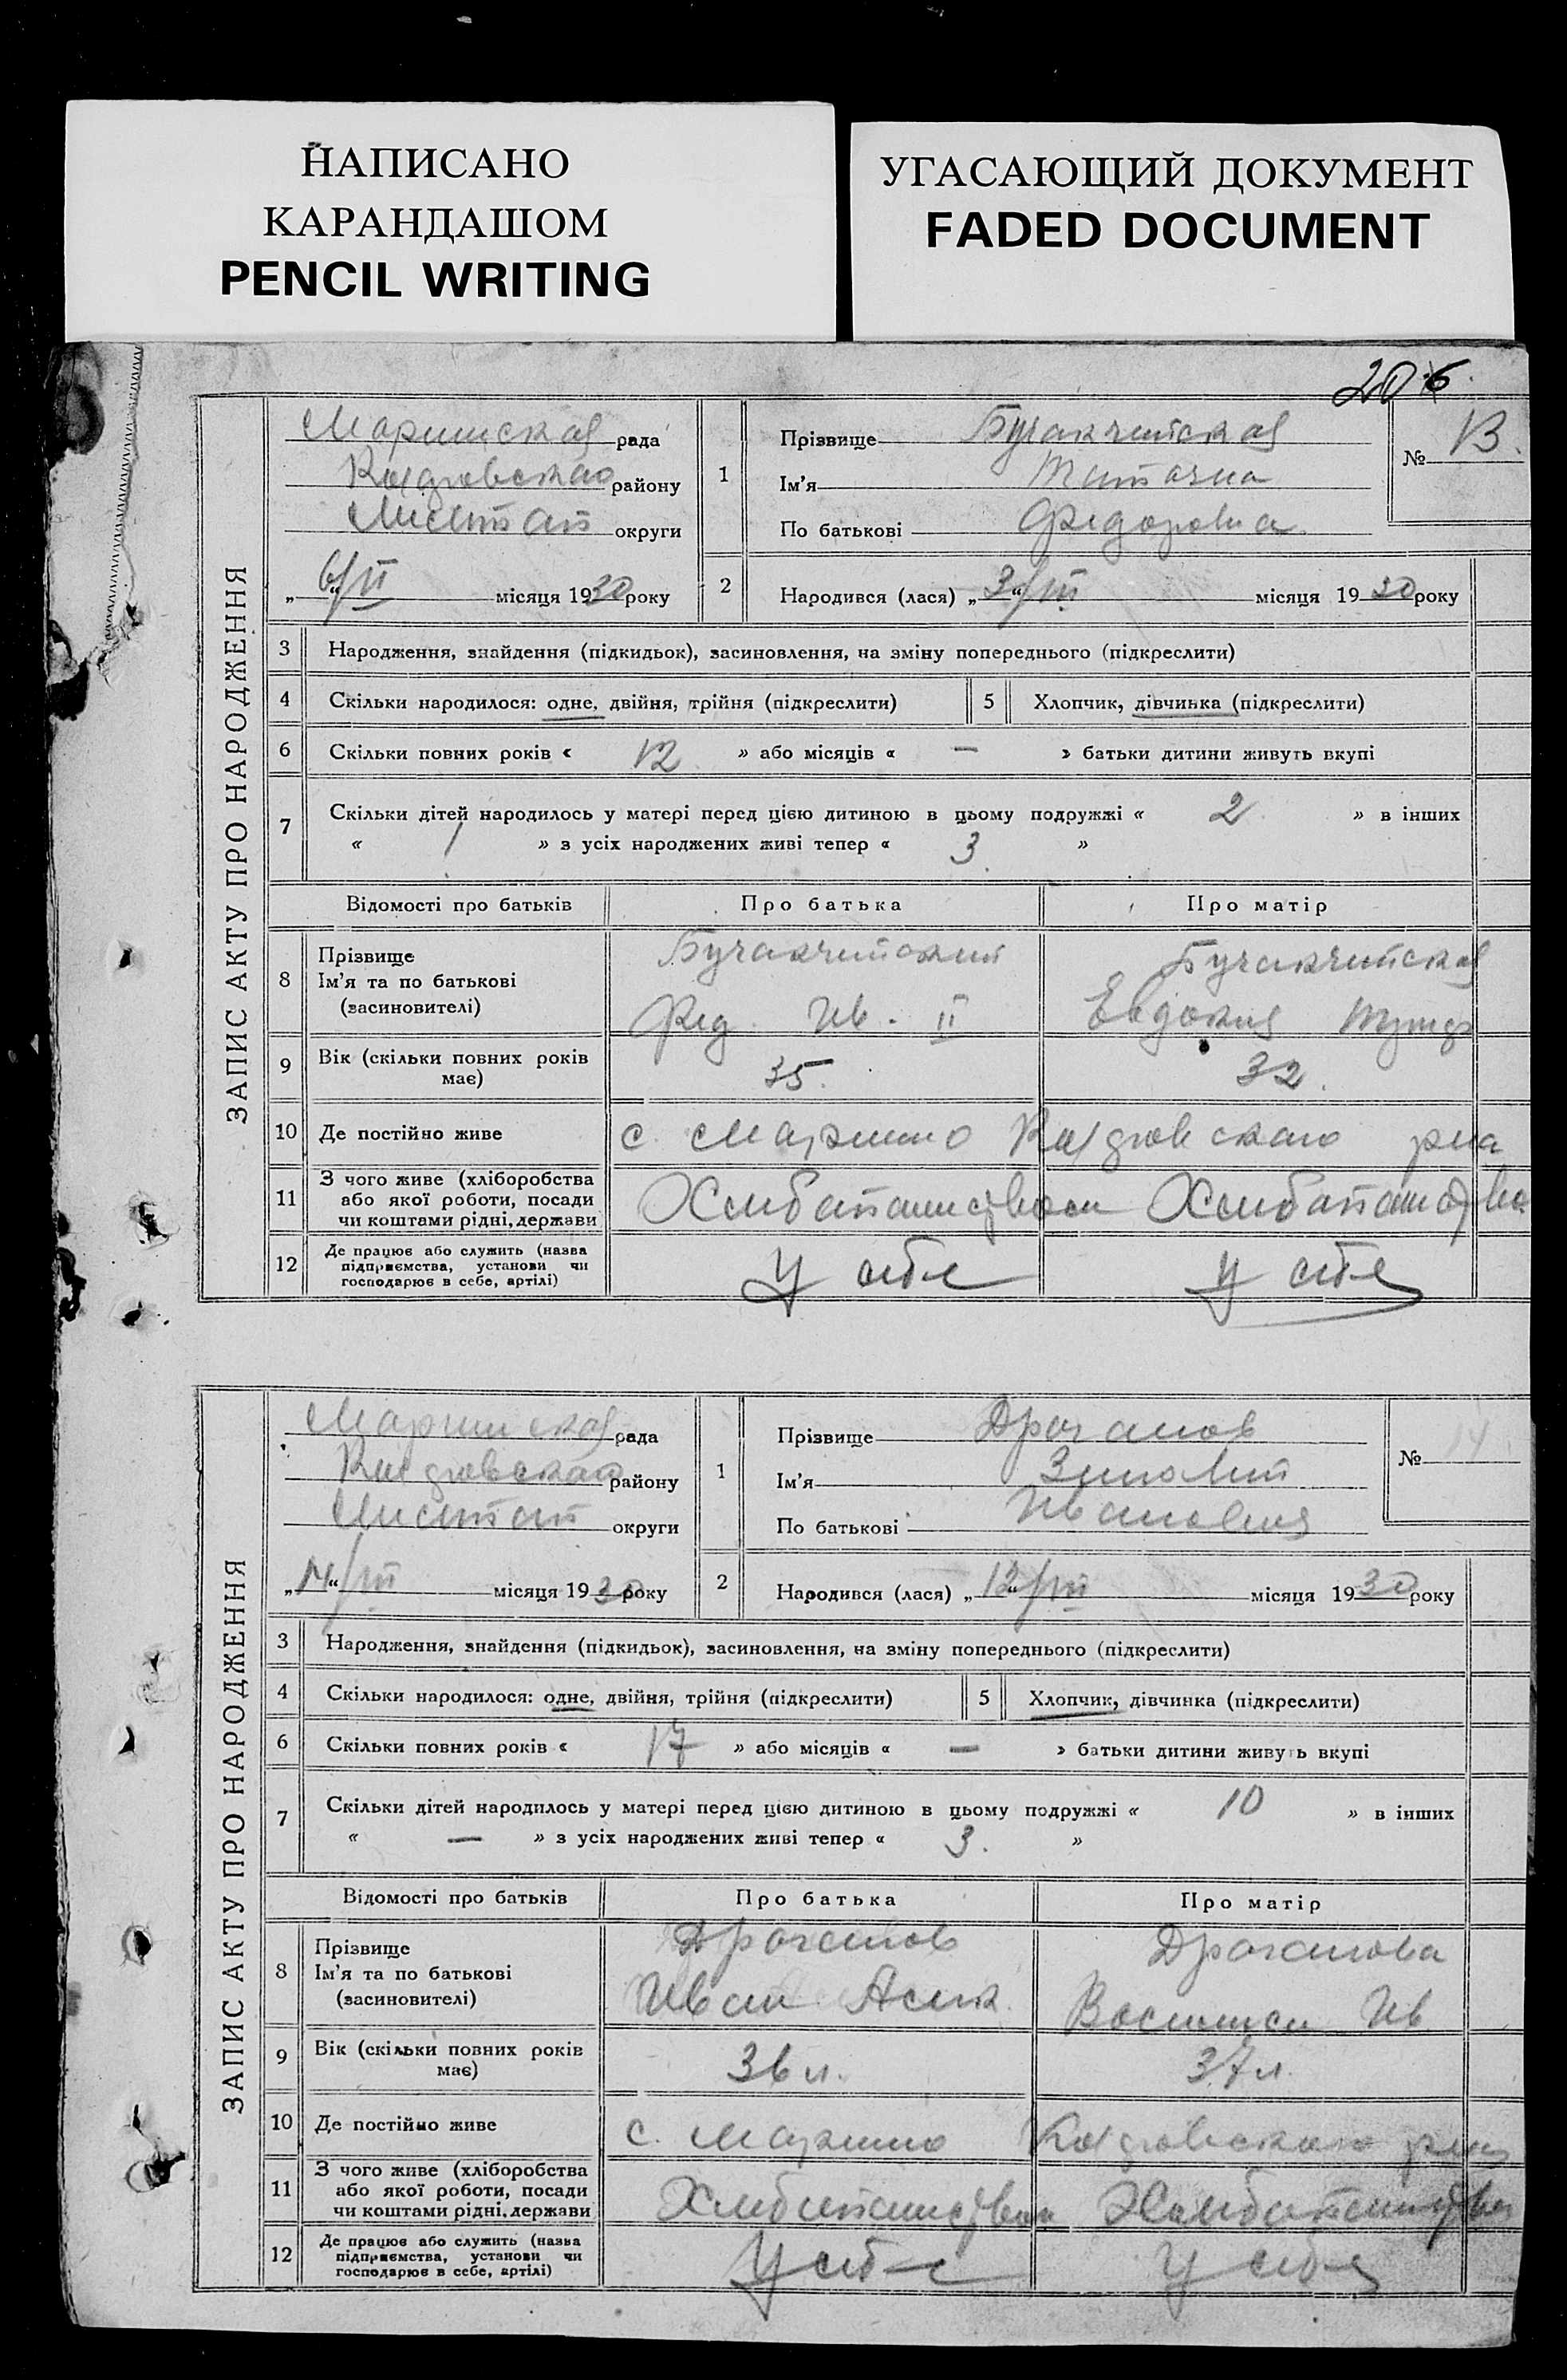 НАПИСАНО
КАРАНДАШОМ
PENCIL WRITING
УГАСАЮЩИЙ ДОКУМЕНТ
FADED DOCUMENT
206
ЗАПИС АКТУ ПРО НАРОДЖЕННЯ
рада
району
округи
„6“/III місяця 1930 року
1
Прізвище Бучакчийская
Ім'я Татьяна
По батькові Федоровна
№ 13.
2 Народився (лася) „3“/III місяця 1930 року
3 Народження, знайдення (підкидьок), засиновлення, на зміну попереднього (підкреслити)
4 Скільки народилося: одне, двійня, трійня (підкреслити) 5 Хлопчик, дівчинка (підкреслити)
6 Скільки повних років « 12 » або місяців « — » батьки дитини живуть вкупі
7 Скільки дітей народилось у матері перед цією дитиною в цьому подружжі « 2 » в інших
« 1 » з усіх народжених живі тепер « 3 »
Відомості про батьків Про батька Про матір
8 Прізвище Бучакчийский Бучакчийская
Ім'я та по батькові
(засиновителі) Фед. Ив. II Евдокия
9 Вік (скільки повних років
має) 35. 32.
10 Де постійно живе с. Марино
11 З чого живе (хліборобства
або якої роботи, посади
чи коштами рідні, держави Хлебопашеством Хлебопашество
12 Де працює або служить (назва
підприємства, установи чи
господарює в себе, артілі) у себе у себя
ЗАПИС АКТУ ПРО НАРОДЖЕННЯ
рада
району
округи
„14“/III місяця 1930 року
1
Прізвище Драганов
Ім'я Зиновий
По батькові Иванович
№ 14
2 Народився (лася) „12“/III місяця 1930 року
3 Народження, знайдення (підкидьок), засиновлення, на зміну попереднього (підкреслити)
4 Скільки народилося: одне, двійня, трійня (підкреслити) 5 Хлопчик, дівчинка (підкреслити)
6 Скільки повних років « 17 » або місяців « — » батьки дитини живуть вкупі
7 Скільки дітей народилось у матері перед цією дитиною в цьому подружжі « 10 » в інших
« — » з усіх народжених живі тепер « 3. »
Відомості про батьків Про батька Про матір
8 Прізвище Драганов Драганова
Ім'я та по батькові
(засиновителі) Иван Ив
9 Вік (скільки повних років
має) 36 л. 37 л.
10 Де постійно живе с. Марино
11 З чого живе (хліборобства
або якої роботи, посади
чи коштами рідні, держави Хлебопашеством
12 Де працює або служить (назва
підприємства, установи чи
господарює в себе, артілі) у себе у себя